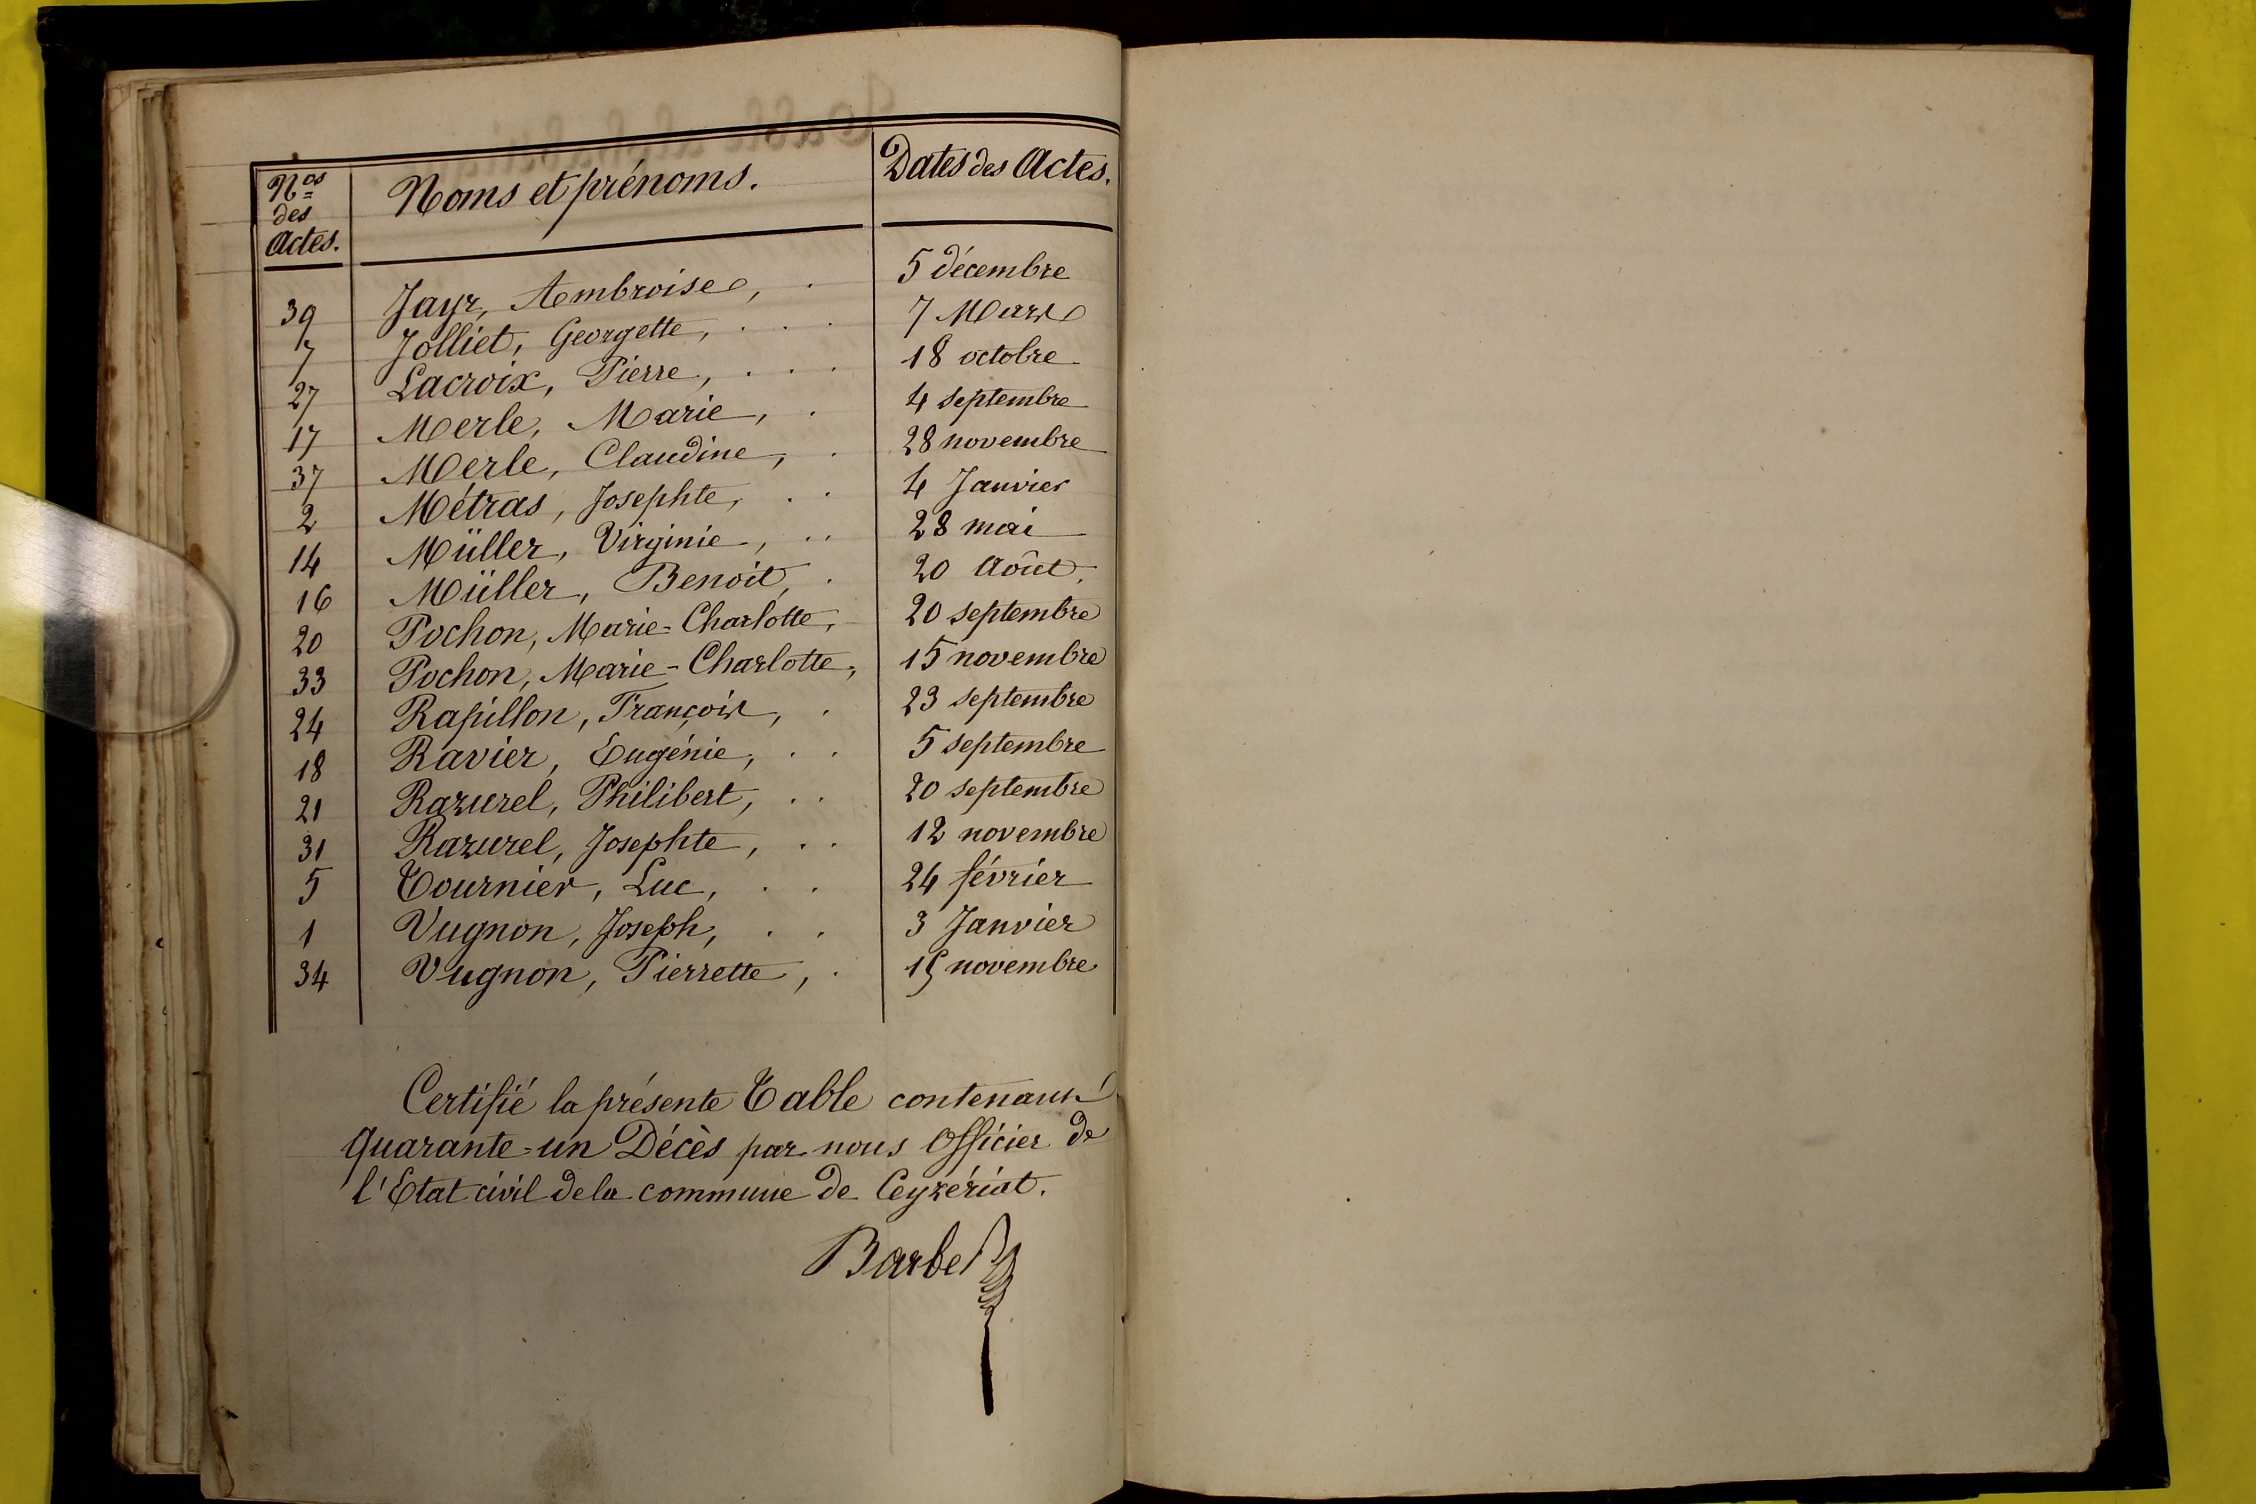 Nos des Actes. Noms et prénoms. Dates des Actes.
39 Jayr, Ambroise, . 5 décembre
7 Jolliet, Georgette, . . . 7 Mars
27 Lacroix, Pierre, . . . 18 octobre
17 Merle, Marie, . 4 septembre
37 Merle, Claudine, . 28 novembre
2 Métras, Josephte, . . 4 Janvier
14 Müller, Virginie, . . 28 mai
16 Müller, Benoit, . 20 Août.
20 Pochon, Marie-Charlotte, 20 septembre
33 Pochon, Marie-Charlotte, 15 novembre
24 Rapillon, François, . 23 septembre
18 Ravier, Eugénie, . . 5 septembre
21 Razurel, Philibert, . . 20 septembre
31 Razurel, Josephte, . . 12 novembre
5 Tournier, Luc, . . 24 février
1 Vugnon, Joseph, . . 3 Janvier
34 Vugnon, Pierrette, . 15 novembre
Certifié la présente Table contenant
quarante-un Décès par nous Officier de
l'Etat civil de la commune de Ceyzériat.
Barbet